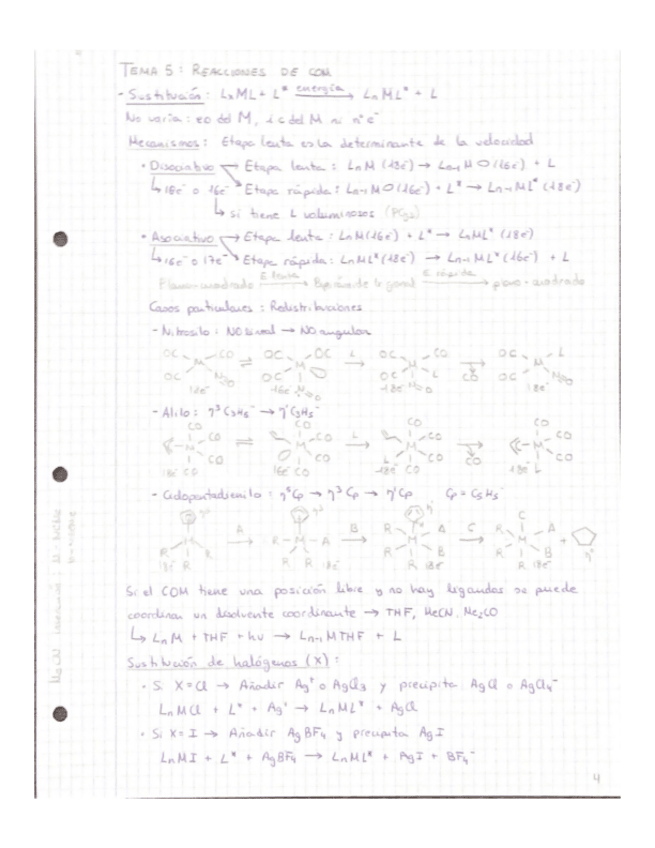 TEMA 5: REACCIONES DE COM
- Sustitución: LnML + L* energía → LnML* + L
No varía: eo del M, ic del M ni nº e⁻
Mecanismos: Etapa lenta es la determinante de la velocidad
• Disociativo → Etapa lenta: LnM (18e⁻) → Ln-1M (16e⁻) + L
↳ 18e⁻ o 16e⁻ → Etapa rápida: Ln-1M (16e⁻) + L* → Ln-1ML* (18e⁻)
↳ si tiene L voluminosos
• Asociativo → Etapa lenta: LnM(16e⁻) + L* → LnML* (18e⁻)
↳ 16e⁻ o 17e⁻ → Etapa rápida: LnML*(18e⁻) → Ln-1ML*(16e⁻) + L
Plano-cuadrado E. lenta → Bipirámide trigonal E. rápida → plano-cuadrado
Casos particulares: Redistribuciones
- Nitrosilo: NO lineal → NO angular
OC CO OC OC L OC CO OC L
OC M NO ⇌ OC M → OC M CO → OC M NO
18e⁻ 16e⁻ 18e⁻ 18e⁻
- Alilo: η³ C₃H₅⁻ → η¹ C₃H₅⁻
CO CO CO CO
M CO ⇌ M CO L → M CO → M CO
18e⁻ CO 16e⁻ CO 18e⁻ L CO 18e⁻ L
- Ciclopentadienilo: η⁵Cp → η³Cp → η¹Cp Cp = C₅H₅⁻
η⁵ η³ η¹
M A → R M A B → R M A C → R M A +
R R R 18e⁻ R B R B
18e⁻ R 18e⁻ R 18e⁻
Si el COM tiene una posición libre y no hay ligandos se puede
coordinar un disolvente coordinante → THF, MeCN, Me₂CO
↳ LnM + THF + hν → Ln-1MTHF + L
Sustitución de halógenos (X):
• Si X=Cl → Añadir Ag⁺ o AgCl₃ y precipita AgCl o AgCl₄⁻
LnMCl + L* + Ag⁺ → LnML* + AgCl
• Si X=I → Añadir AgBF₄ y precipita AgI
LnMI + L* + AgBF₄ → LnML* + AgI + BF₄⁻
4